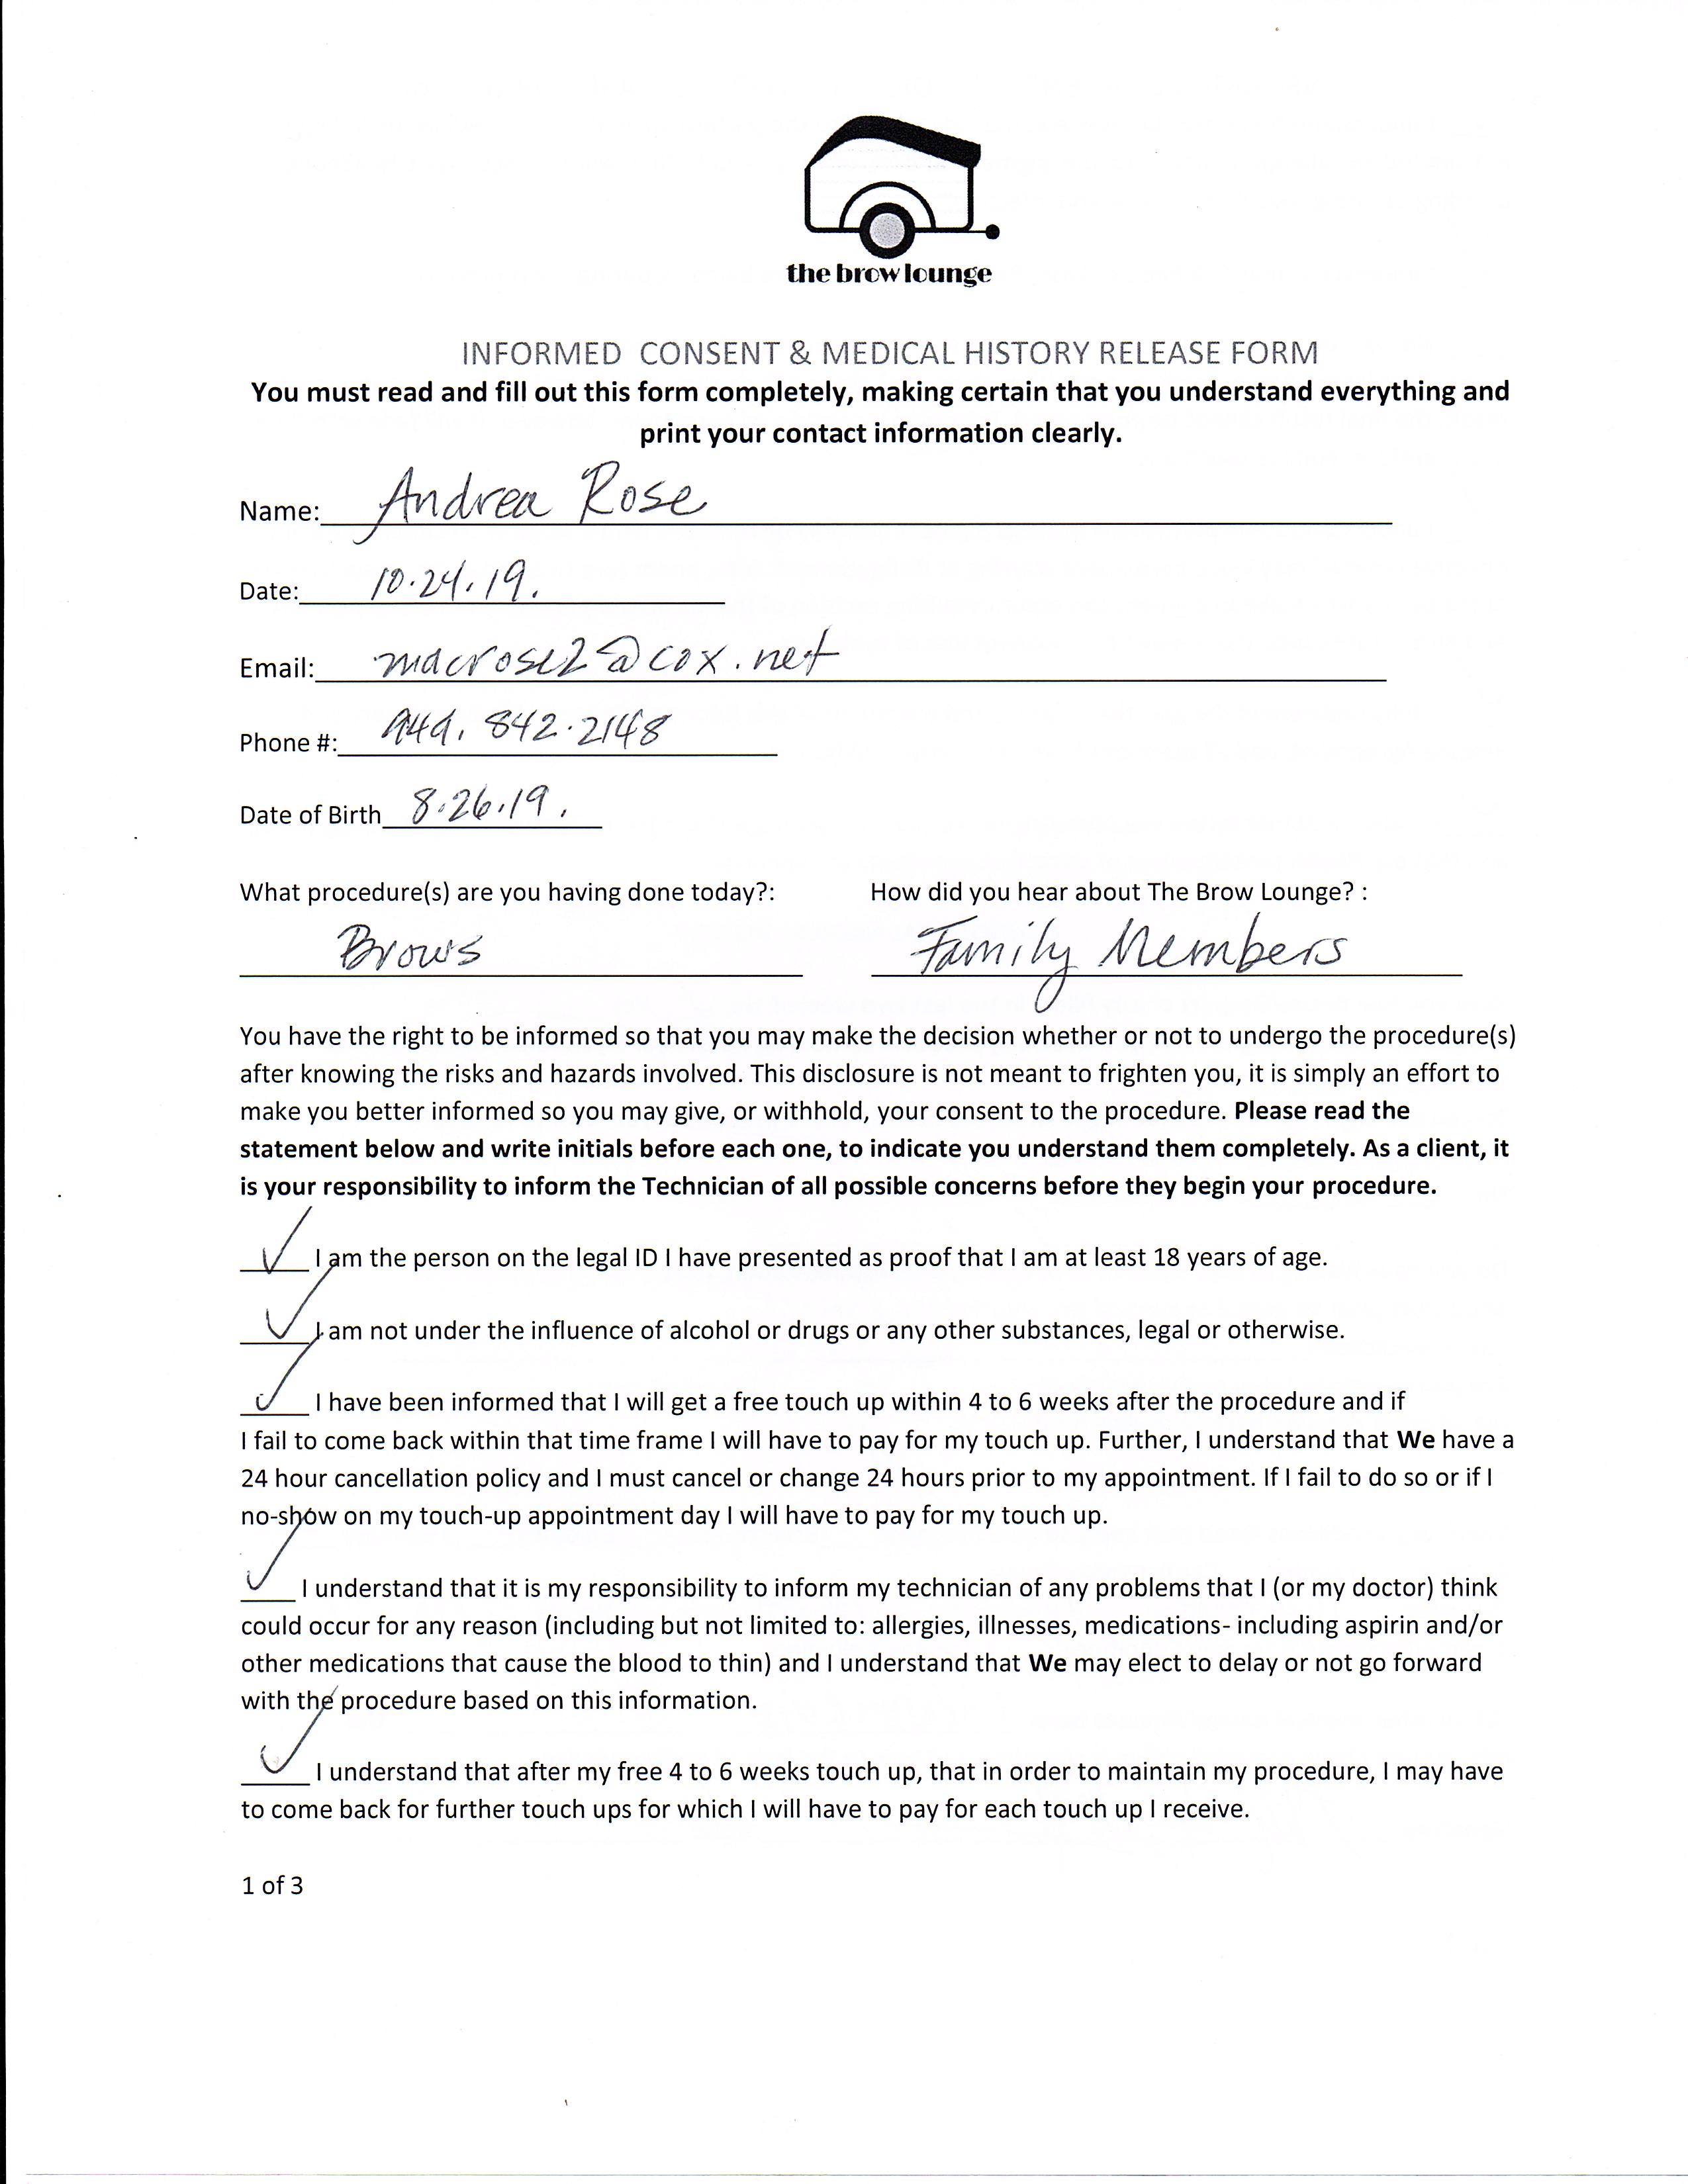 the brow lounge
INFORMED CONSENT & MEDICAL HISTORY RELEASE FORM
You must read and fill out this form completely, making certain that you understand everything and
print your contact information clearly.
Name: Andrea Rose
Date: 10.24.19.
Email: macrose2@cox.net
Phone #: 949.842.2148
Date of Birth 8.26.19.
What procedure(s) are you having done today?: How did you hear about The Brow Lounge? :
Brows Family Members
You have the right to be informed so that you may make the decision whether or not to undergo the procedure(s)
after knowing the risks and hazards involved. This disclosure is not meant to frighten you, it is simply an effort to
make you better informed so you may give, or withhold, your consent to the procedure. Please read the
statement below and write initials before each one, to indicate you understand them completely. As a client, it
is your responsibility to inform the Technician of all possible concerns before they begin your procedure.
✓ I am the person on the legal ID I have presented as proof that I am at least 18 years of age.
✓ I am not under the influence of alcohol or drugs or any other substances, legal or otherwise.
✓ I have been informed that I will get a free touch up within 4 to 6 weeks after the procedure and if
I fail to come back within that time frame I will have to pay for my touch up. Further, I understand that We have a
24 hour cancellation policy and I must cancel or change 24 hours prior to my appointment. If I fail to do so or if I
no-show on my touch-up appointment day I will have to pay for my touch up.
✓ I understand that it is my responsibility to inform my technician of any problems that I (or my doctor) think
could occur for any reason (including but not limited to: allergies, illnesses, medications- including aspirin and/or
other medications that cause the blood to thin) and I understand that We may elect to delay or not go forward
with the procedure based on this information.
✓ I understand that after my free 4 to 6 weeks touch up, that in order to maintain my procedure, I may have
to come back for further touch ups for which I will have to pay for each touch up I receive.
1 of 3